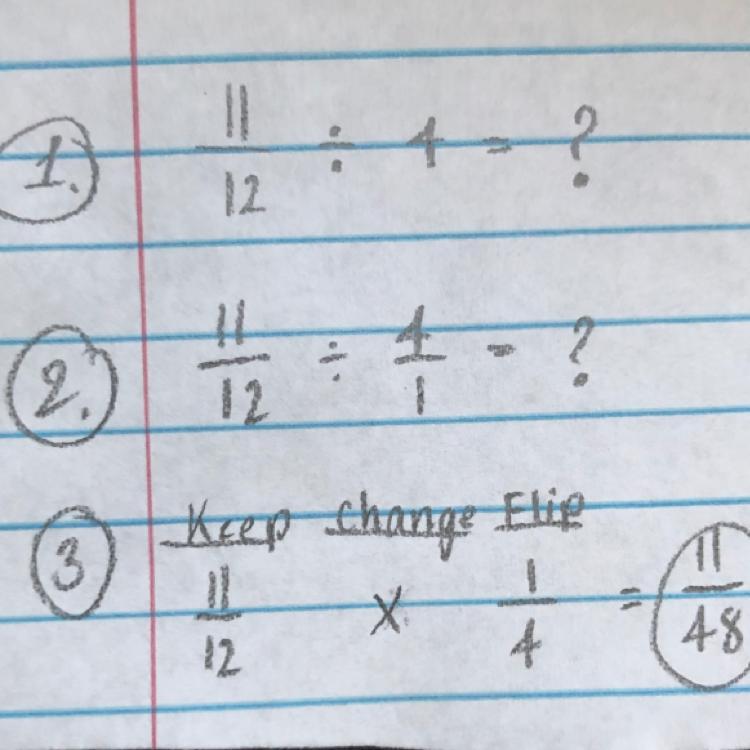 1. 11/12 ÷ 4 = ?
2. 11/12 ÷ 4/1 = ?
3 Keep Change Flip
11/12 x 1/4 = 11/48